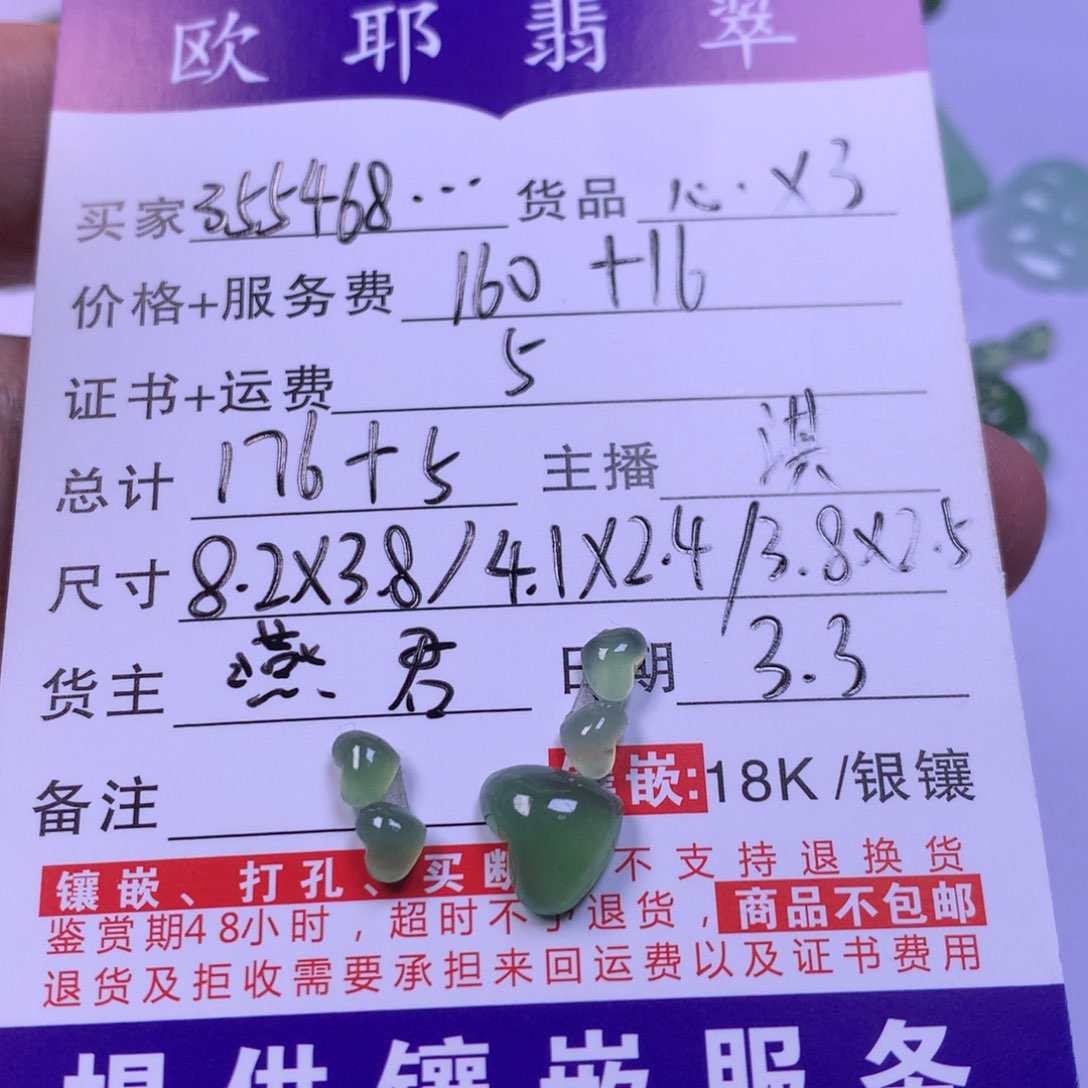 欧耶翡翠
买家355468... 货品 心.×3
价格+服务费 160 +16
证书+运费 5
总计 176+5 主播 淇
尺寸 8.2X3.8/4.1X2.4/3.8X2.5
货主 燕君 日期 3.3
备注 嵌:18K/银镶
镶嵌、打孔、买断 不支持退换货
鉴赏期48小时，超时不予退货，商品不包邮
退货及拒收需要承担来回运费以及证书费用
提供镶嵌服务